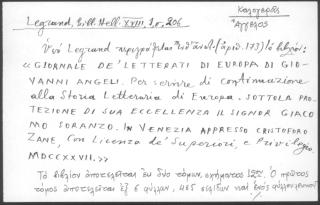 Legrand, Bibl. Hell. XVIII, 1ος, 206
Καλογερᾶς
Ἄγγελος
Ὑπὸ Legrand περιγράφεται (ἀριθ. 173) τὸ βιβλίον:
«GIORNALE DE' LETTERATI DI EUROPA DI GIO-
VANNI ANGELI. Per servire di continuazione
alla Storia Letteraria di Europa. SOTTO LA PRO-
TEZIONE DI SUA ECCELLENZA IL SIGNOR GIACO
MO SORANZO. IN VENEZIA APPRESSO CRISTOFORO
ZANE, Con Licenza de' Superiori, e Privilegio
MDCCXXVII,»
Τὸ βιβλίον ἀποτελεῖται ἐκ δύο τόμων, σχήματος 12ου. Ὁ πρῶτος
τόμος ἀποτελεῖται ἐξ 6 φύλλων, 465 σελίδων καὶ ἑνὸς φύλλου